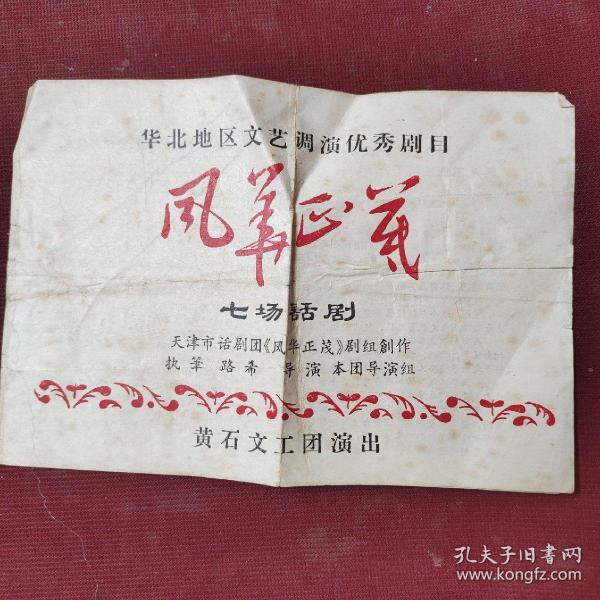 华北地区文艺调演优秀剧目
风华正茂
七场話剧
天津市话剧团《风华正茂》剧组創作
执筆 路希 导演 本团导演组
黄石文工团演出
孔夫子旧书网
www.kongfz.com